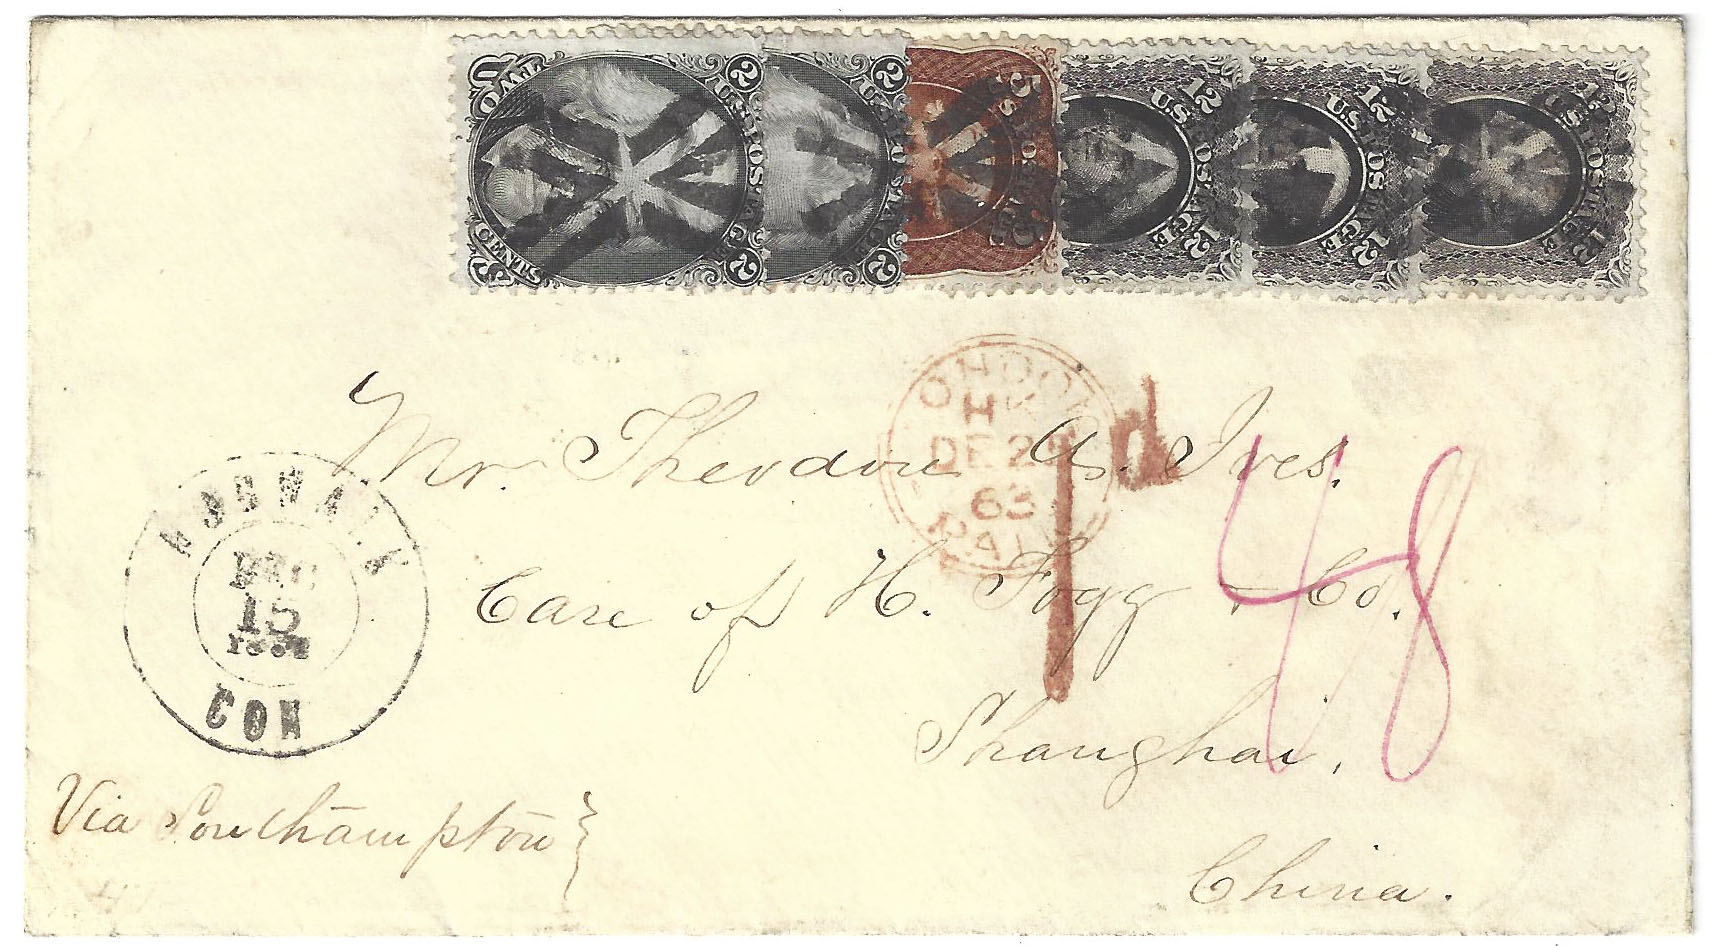 TWO CENTS 2 U.S. POSTAGE 2
2 U.S. POSTAGE 2
5 U.S. POSTAGE 5
12 U.S. POSTAGE 12
12 U.S. POSTAGE 12
12 U.S. POSTAGE 12
LONDON
HK
DE 2
63
PAID
1d
48
Mr. Theodore A. Ives.
Care of H. Fogg & Co.
Shanghai,
China.
NORWALK
DEC
15
CON
Via Southampton